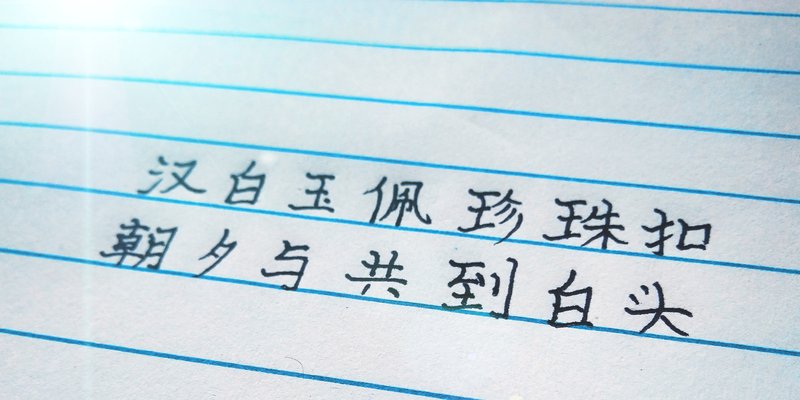 汉白玉佩珍珠扣
朝夕与共到白头